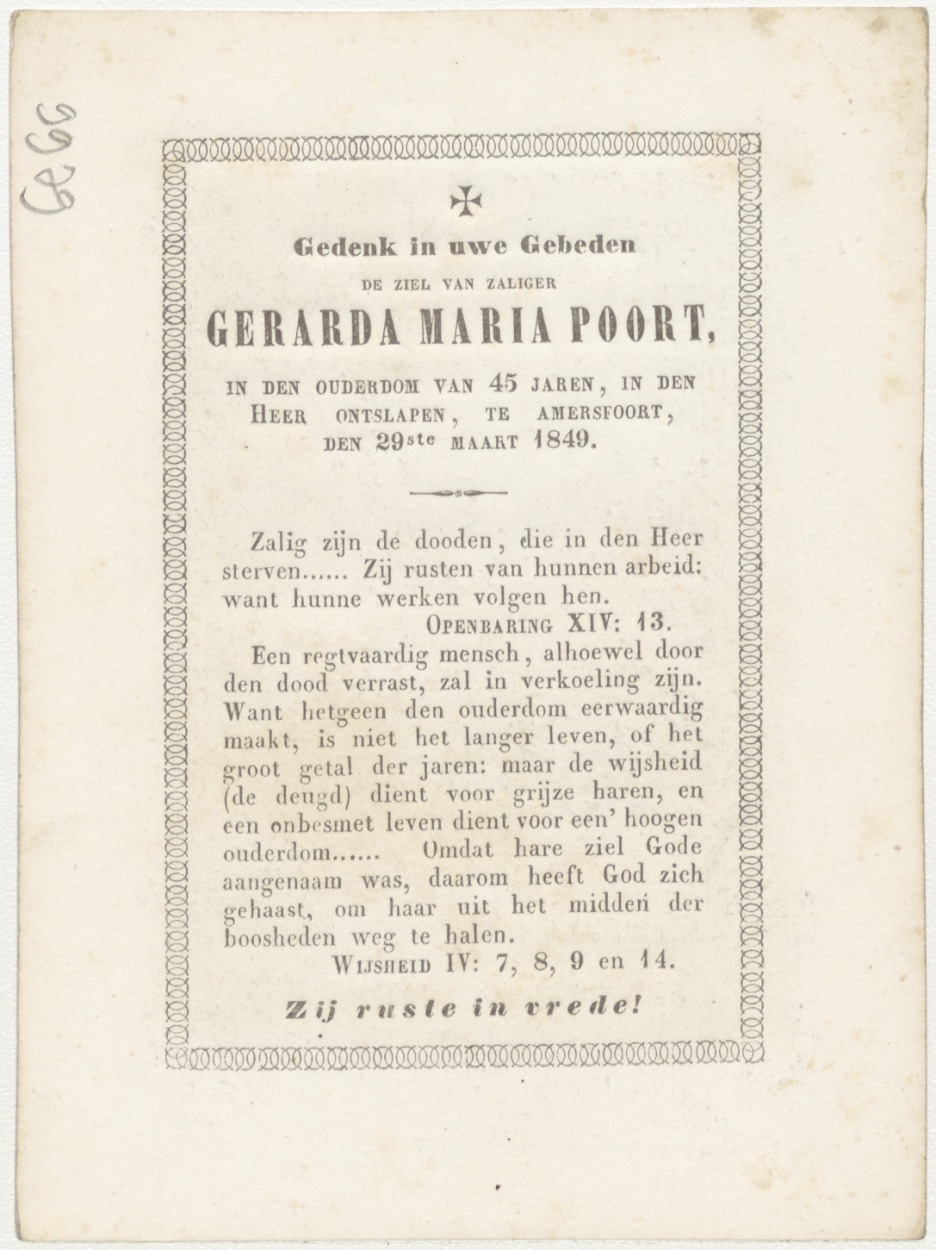 ✠
Gedenk in uwe Gebeden
DE ZIEL VAN ZALIGER
GERARDA MARIA POORT,
IN DEN OUDERDOM VAN 45 JAREN, IN DEN
HEER ONTSLAPEN, TE AMERSFOORT,
DEN 29ste MAART 1849.
Zalig zijn de dooden, die in den Heer
sterven...... Zij rusten van hunnen arbeid:
want hunne werken volgen hen.
OPENBARING XIV: 13.
Een regtvaardig mensch, alhoewel door
den dood verrast, zal in verkoeling zijn.
Want hetgeen den ouderdom eerwaardig
maakt, is niet het langer leven, of het
groot getal der jaren: maar de wijsheid
(de deugd) dient voor grijze haren, en
een onbesmet leven dient voor een' hoogen
ouderdom...... Omdat hare ziel Gode
aangenaam was, daarom heeft God zich
gehaast, om haar uit het midden der
boosheden weg te halen.
WIJSHEID IV: 7, 8, 9 en 14.
Zij ruste in vrede!